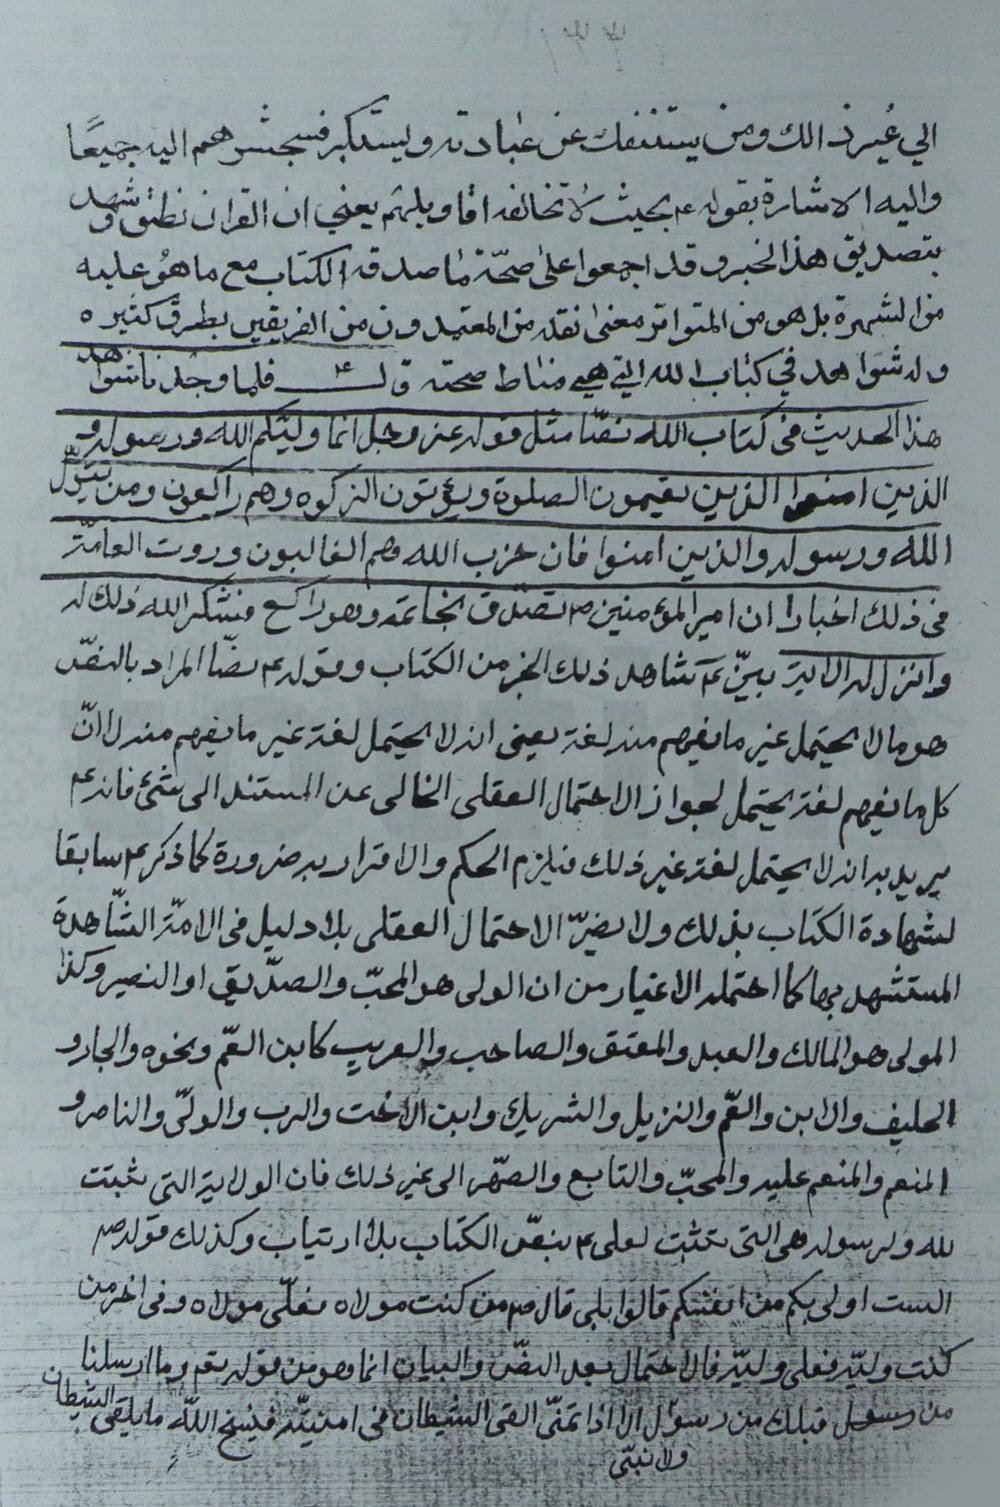 الي غير ذالك ومن يستنفك عن عبادته ويستكبر فسيحشرهم اليه جميعًا
واليه الاشارة بقوله ع بحيث لا تخالفه اقاويلهم يعني ان القران نطق وشهد
بتصديق هذا الخبر وقد اجمعوا على صحّة ما صدقه الكتاب مع ما هو عليه
من الشهرة بل هو من المتواتر معنى نقله من المعتمدون من الفريقين بطرق كثيره
وله شواهد في كتاب الله التي هيي مناط صحته قال ع فلما وجدنا شواهد
هذا الحديث في كتاب الله نصّا مثل قوله عز وجل انما وليّكم الله ورسوله و
الذين امنوا الذين يقيمون الصلوة ويؤتون الزكوه وهم راكعون ومن يتولّ
الله ورسوله والذين امنوا فان حزب الله هم الغالبون وروت العامّة
في ذلك اخبارا ان امير المؤمنين ص تصدّق بخاتمه وهو راكع فشكر الله ذلك له
وانزل له الاية بيّن ع تشاهد ذلك الخبر من الكتاب وقوله ع نصّا المراد بالنصّ
هو مالا يحتمل غير ما يفهم منه لغة يعنى انه لا يحتمل لغة غير ما يفهم منه لا انّ
كل ما يفهم لغة يحتمل لجواز الاحتمال العقلى الخالى عن المستند الى شئ فانه ع
يريد به انه لا يحتمل لغة غير ذلك فيلزم الحكم والاقرار به ضرورة كما ذكر ع سابقا
لشهادة الكتاب بذلك ولا يضرّ الاحتمال العقلى بلا دليل فى الامّة الشاهدة
المستشهد بها كما احتمله الاغيار من ان الولى هو المحبّ والصدّيق او النصير وكذا
المولى هو المالك والعبد والمعتق والصاحب والقريب كابن العمّ ونحوه والجار و
الحليف والابن والعّم والنزيل والشريك وابن الاخت والرب والولىّ والناصر و
المنعم والمنعم عليه والمحبّ والتابع والصّهر الى غير ذلك فان الولاية التى ثبتت
لله ولرسوله هى التى تثبت لعلى ع بنصّ الكتاب بلا ارتياب وكذلك قوله ص
الست اولى بكم من انفسكم قالوا بلى قال ص من كنت مولاه فعلّى مولاه وفى اخر من
كنت وليّه فعلى وليّه فالاحتمال بعد النصّ والبيان انما هو من قوله تعم وما ارسلنا
من قبلك من رسول الا اذا تمنّى القى الشيطان فى امنيّته فينسخ اللّه ما يلقى الشيطان
ولا نبّى